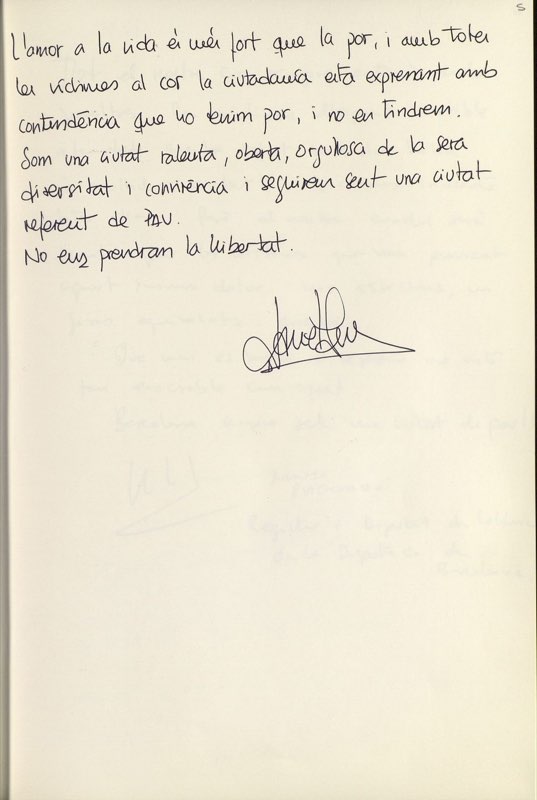 5
L'amor a la vida és més fort que la por, i amb totes
les víctimes al cor la ciutadania està expresant amb
contundència que no tenim por, i no en tindrem.
Som una ciutat valenta, oberta, orgullosa de la seva
diversitat i convivència i seguirem sent una ciutat
referent de PAU.
No ens prendran la llibertat.